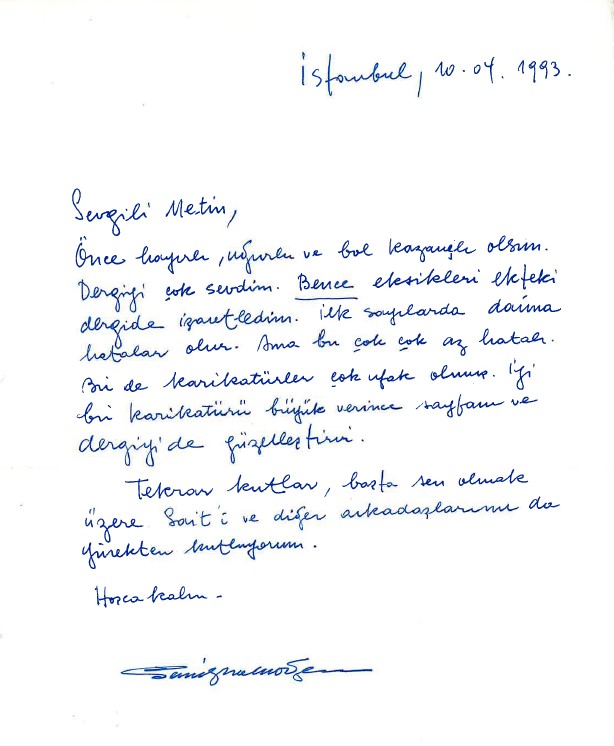 İstanbul, 10.04.1993.
Sevgili Metin,
Önce hayırlı, uğurlu ve bol kazançlı olsun.
Dergiyi çok sevdim. Bence eksikleri ekteki
dergide işaretledim. İlk sayılarda daima
hatalar olur. Ama bu çok çok az hatalı.
Bir de karikatürler çok ufak olmuş. İyi
bir karikatürü büyük verince sayfanı ve
dergiyi de güzelleştirir.
Tekrar kutlar, başta sen olmak
üzere Sait'i ve diğer arkadaşlarını da
yürekten kutluyorum.
Hoşça kalın -